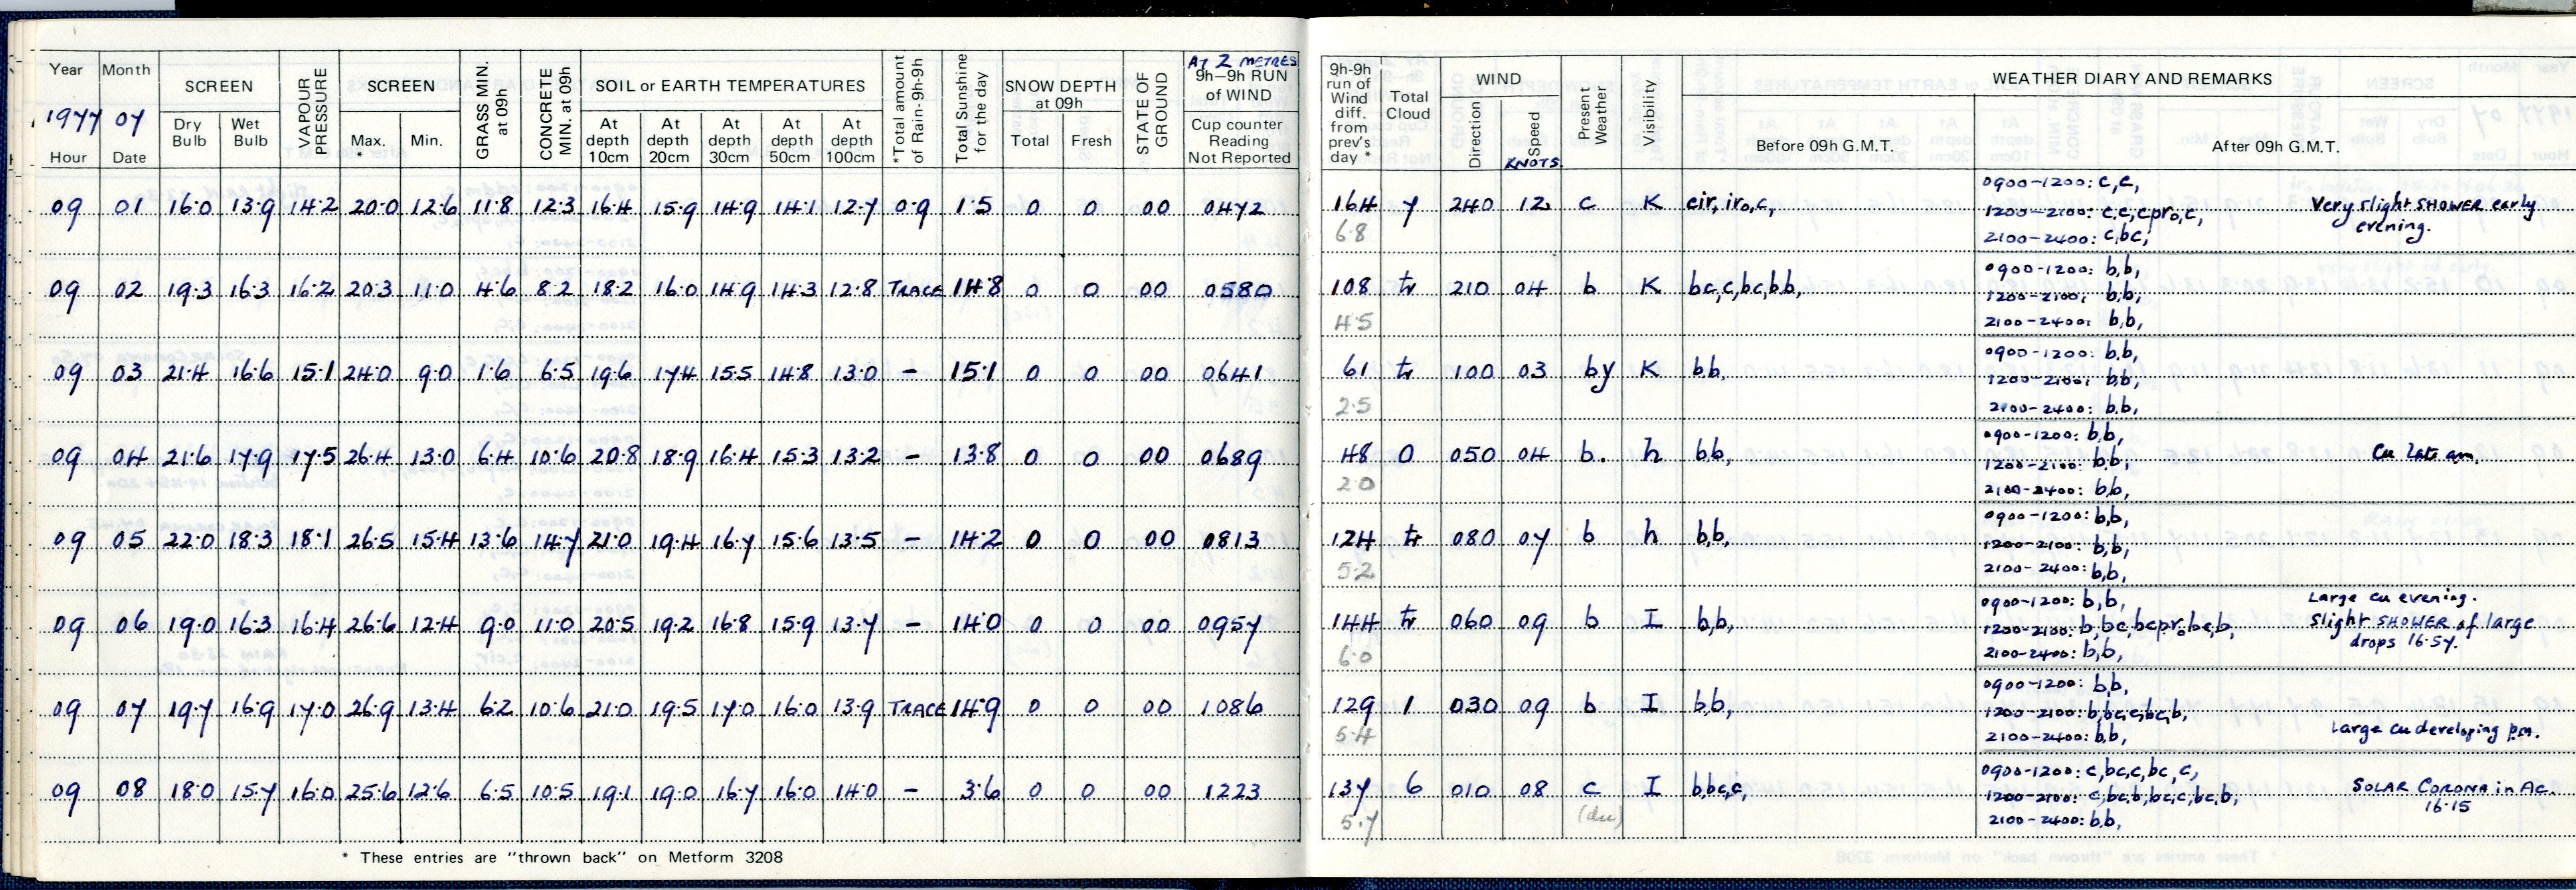 Year Month SCREEN VAPOUR PRESSURE SCREEN GRASS MIN. at 09h CONCRETE MIN. at 09h SOIL or EARTH TEMPERATURES *Total amount of Rain-9h-9h Total Sunshine for the day SNOW DEPTH at 09h STATE OF GROUND AT 2 METRES 9h–9h RUN of WIND
1977 07 Dry Bulb Wet Bulb Max. * Min. At depth 10cm At depth 20cm At depth 30cm At depth 50cm At depth 100cm Total Fresh Cup counter Reading Not Reported
Hour Date
09 01 16.0 13.9 14.2 20.0 12.6 11.8 12.3 16.4 15.9 14.9 14.1 12.7 0.9 1.5 0 0 00 0472
09 02 19.3 16.3 16.2 20.3 11.0 4.6 8.2 18.2 16.0 14.9 14.3 12.8 TRACE 14.8 0 0 00 0580
09 03 21.4 16.6 15.1 24.0 9.0 1.6 6.5 19.6 17.4 15.5 14.8 13.0 – 15.1 0 0 00 0641
09 04 21.6 17.9 17.5 26.4 13.0 6.4 10.6 20.8 18.9 16.4 15.3 13.2 – 13.8 0 0 00 0689
09 05 22.0 18.3 18.1 26.5 15.4 13.6 14.7 21.0 19.4 16.7 15.6 13.5 – 14.2 0 0 00 0813
09 06 19.0 16.3 16.4 26.6 12.4 9.0 11.0 20.5 19.2 16.8 15.9 13.7 – 14.0 0 0 00 0957
09 07 19.7 16.9 17.0 26.9 13.4 6.2 10.6 21.0 19.5 17.0 16.0 13.9 TRACE 14.9 0 0 00 1086
09 08 18.0 15.7 16.0 25.6 12.6 6.5 10.5 19.1 19.0 16.7 16.0 14.0 – 3.6 0 0 00 1223
* These entries are "thrown back" on Metform 3208
9h-9h run of Wind diff. from prev's day * Total Cloud WIND Present Weather Visibility WEATHER DIARY AND REMARKS
Direction Speed KNOTS. Before 09h G.M.T. After 09h G.M.T.
0900-1200: c,c,
164 7 240 12 c K cir, iro, c, 1200-2100: c,c,cpro,c, Very slight SHOWER early
6.8 2100-2400: c,bc, evening.
0900-1200: b,b,
108 tr 210 04 b K bc,c,bc,b,b, 1200-2100: b,b,
4.5 2100-2400: b,b,
0900-1200: b,b,
61 tr 100 03 by K b,b, 1200-2100: b,b,
2.5 2100-2400: b,b,
0900-1200: b,b,
48 0 050 04 b. h b,b, 1200-2100: b,b, Cu late am.
2.0 2100-2400: b,b,
0900-1200: b,b,
124 tr 080 07 b h b,b, 1200-2100: b,b,
5.2 2100-2400: b,b,
0900-1200: b,b, Large cu evening.
144 tr 060 09 b I b,b, 1200-2100: b,bc,bcpro,bc,b, Slight SHOWER of large
6.0 2100-2400: b,b, drops 16.57.
0900-1200: b,b,
129 1 030 09 b I b,b, 1200-2100: b,bc,c,bc,b,
5.4 2100-2400: b,b, Large cu developing pm.
0900-1200: c,bc,c,bc,c,
137 6 010 08 c I b,bc,c, 1200-2100: c,bc,b,bc,c,bc,b, SOLAR CORONA in Ac.
5.7 2100-2400: b,b, 16.15